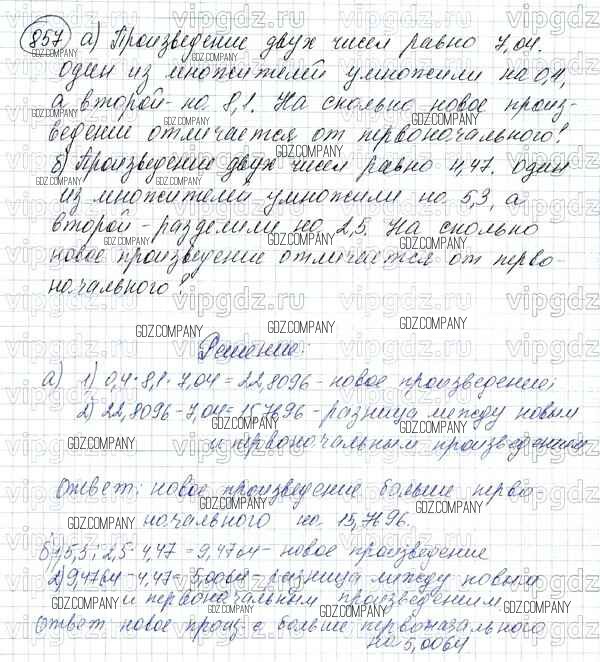 857 а) Произведение двух чисел равно 7,04.
один из множителей умножили на 0,4,
а второй - на 8,1. На сколько новое произ-
ведение отличается от первоначального?
б) Произведение двух чисел равно 4,47. один
из множителей умножили на 5,3, а
второй - разделили на 2,5. На сколько
новое произведение отличается от перво-
начального?
Решение:
а) 1) 0,4·8,1·7,04=22,8096 - новое произведение;
2) 22,8096-7,04=15,7696 - разница между новым
и первоначальным произведением
Ответ: новое произведение больше перво
начального на 15,7696.
б) 1) 5,3:2,5·4,47=9,4764 - новое произведение
2) 9,4764-4,47=5,0064 - разница между новым
и первоначальным произведением
Ответ новое произ-е больше первоначального
на 5,0064
vipgdz.ru
GDZ.COMPANY